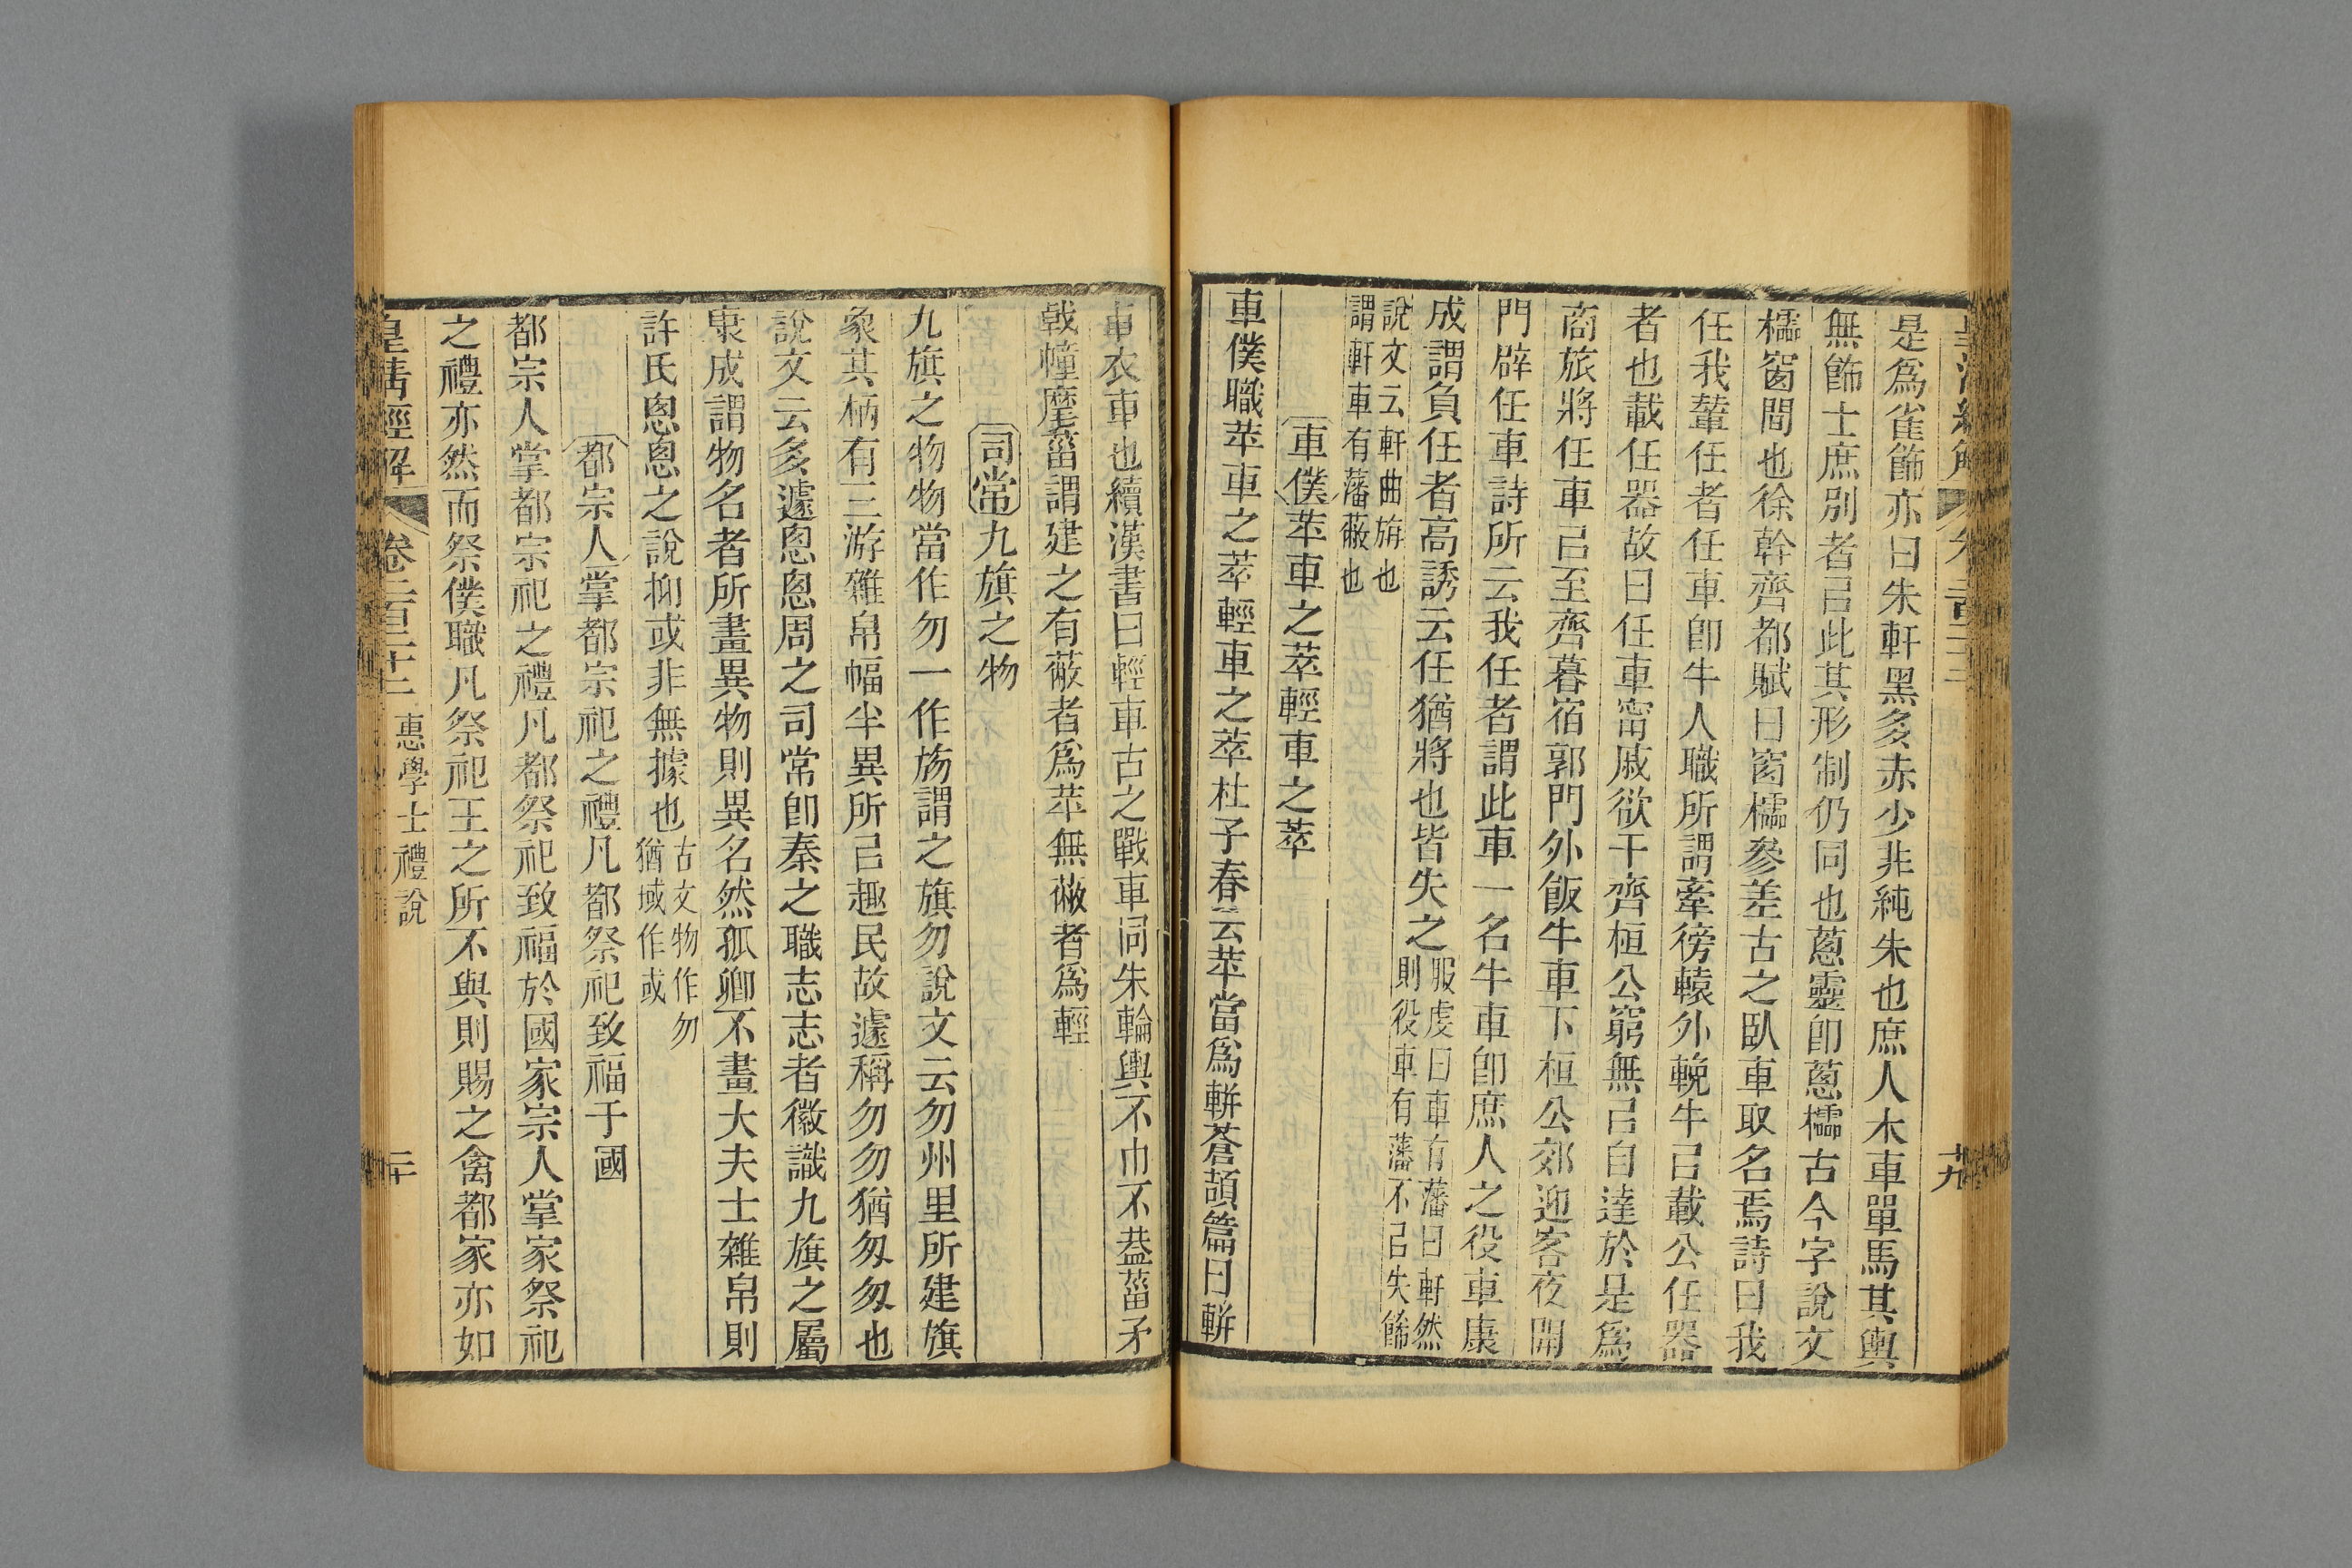 是爲雀飾亦曰朱軒黑多赤少非純朱也庶人木車單馬其輿
無飾士庶別者㠯此其形制仍同也蔥靈卽蔥櫺古今字說文
櫺窗間也徐幹齊都賦曰窗櫺參差古之臥車取名焉詩曰我
任我輦任者任車卽牛人職所謂牽徬轅外輓牛㠯載公任器
者也載任器故曰任車甯戚欲干齊桓公窮無㠯自達於是爲
商旅將任車㠯至齊暮宿郭門外飯牛車下桓公郊迎客夜開
門辟任車詩所云我任者謂此車一名牛車卽庶人之役車康
成謂負任者高誘云任猶將也皆失之服虔曰車有藩曰軒然則役車有藩不㠯失飾
說文云軒曲旃也謂軒車有藩蔽也
車僕苹車之萃輕車之萃
車僕職苹車之萃輕車之萃杜子春云苹當爲軿蒼頡篇曰軿
車衣車也續漢書曰輕車古之戰車同朱輪輿不巾不葢菑矛
戟幢麾菑謂建之有蔽者爲苹無蔽者爲輕
司常九旗之物
九旗之物物當作勿一作㫍謂之旗勿說文云勿州里所建旗
象其柄有三游雜帛幅半異所㠯趣民故遽稱勿勿猶匆匆也
說文云多遽恖恖周之司常卽秦之職志志者徽識九旗之屬
康成謂物名者所畫異物則異名然孤卿不畫大夫士雜帛則
許氏恖恖之說抑或非無據也古文物作勿猶域作或
都宗人掌都宗祀之禮凡都祭祀致福于國
都宗人掌都宗祀之禮凡都祭祀致福於國家宗人掌家祭祀
之禮亦然而祭僕職凡祭祀王之所不與則賜之禽都家亦如
皇清經解 卷二百二十二 惠學士禮說 二十